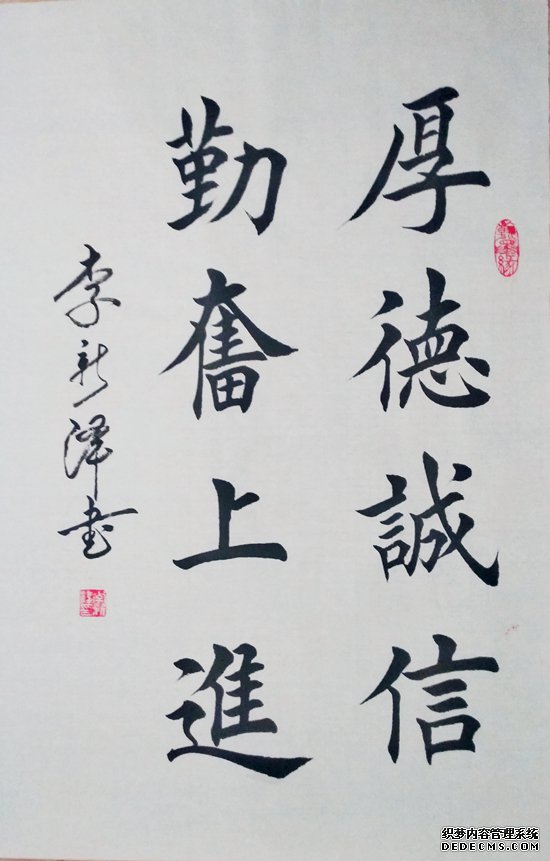 厚德誠信
勤奮上進
李新澤书
织梦内容管理系统
DEDECMS.COM